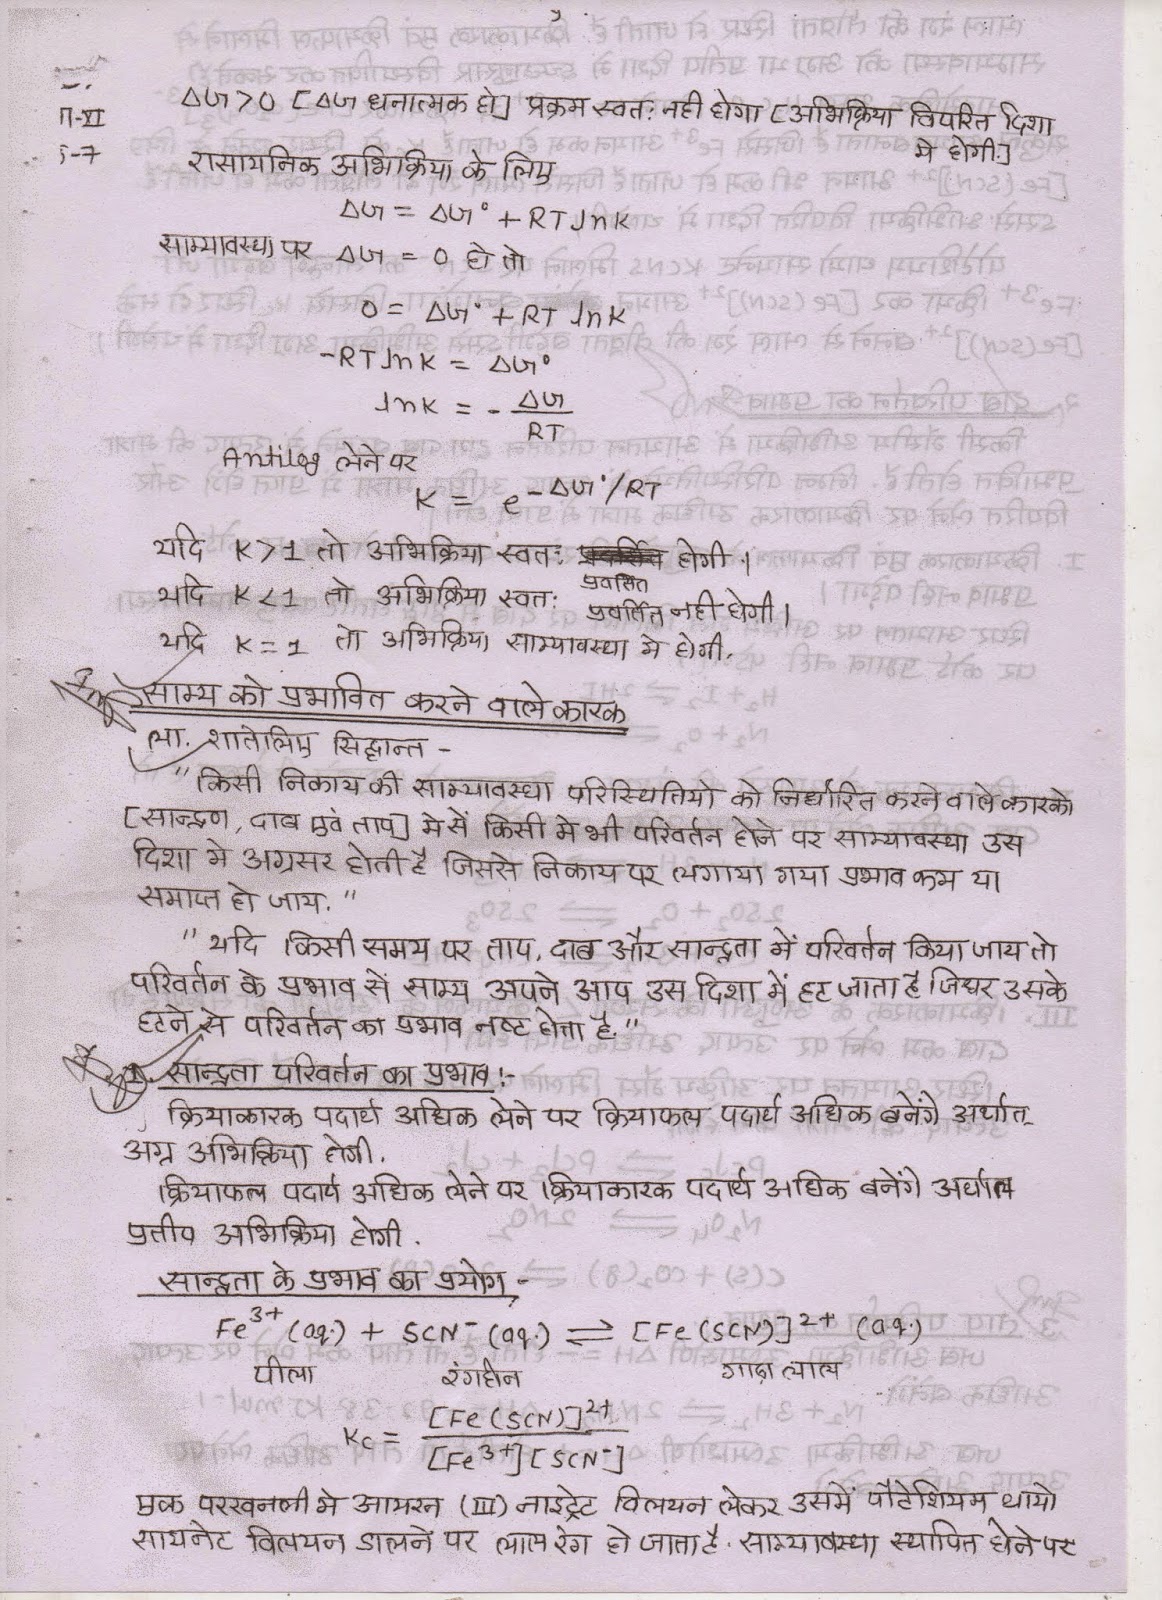 П-XI
5-7
ΔG>0 [ΔG धनात्मक हो] प्रक्रम स्वतः नही होगा [अभिक्रिया विपरित दिशा
मे होगी.]
रासायनिक अभिक्रिया के लिए
ΔG = ΔG° + RT lnK
साम्यावस्था पर ΔG = 0 हो तो
0 = ΔG° + RT lnK
-RT lnK = ΔG°
lnK = - ΔG/RT
Antilog लेने पर
K = e-ΔG°/RT
यदि K>1 तो अभिक्रिया स्वतः प्रवर्तित होगी।
यदि K<1 तो अभिक्रिया स्वतः प्रवर्तित नही होगी।
यदि K=1 तो अभिक्रिया साम्यावस्था मे होगी.
साम्य को प्रभावित करने वाले कारक
ला. शातेलिए सिद्धान्त -
"किसी निकाय की साम्यावस्था परिस्थितियो को निर्धारित करने वाले कारको
[सान्द्रण, दाब एवं ताप] मे सें किसी मे भी परिवर्तन होने पर साम्यावस्था उस
दिशा मे अग्रसर होती है जिससे निकाय पर लगाया गया प्रभाव कम या
समाप्त हो जाय."
"यदि किसी समय पर ताप, दाब और सान्द्रता में परिवर्तन किया जाय तो
परिवर्तन के प्रभाव सें साम्य अपने आप उस दिशा में हट जाता है जिधर उसके
हटने से परिवर्तन का प्रभाव नष्ट होता है."
1. सान्द्रता परिवर्तन का प्रभाव:-
क्रियाकारक पदार्थ अधिक लेने पर क्रियाफल पदार्थ अधिक बनेंगे अर्थात्
अग्र अभिक्रिया होगी.
क्रियाफल पदार्थ अधिक लेने पर क्रियाकारक पदार्थ अधिक बनेंगे अर्थात
प्रतीप अभिक्रिया होगी.
सान्द्रता के प्रभाव का प्रयोग,-
Fe3+ (aq.) + SCN- (aq.) ⇌ [Fe(SCN)]2+ (aq.)
पीला रंगहीन गाढ़ा लाल
Kc = [Fe(SCN)]2+ / [Fe3+][SCN-]
एक परखनली मे आयरन (III) नाइट्रेट विलयन लेकर उसमें पौटेशियम थायो
सायनेट विलयन डालने पर लाल रंग हो जाता है. साम्यावस्था स्थापित होने पर